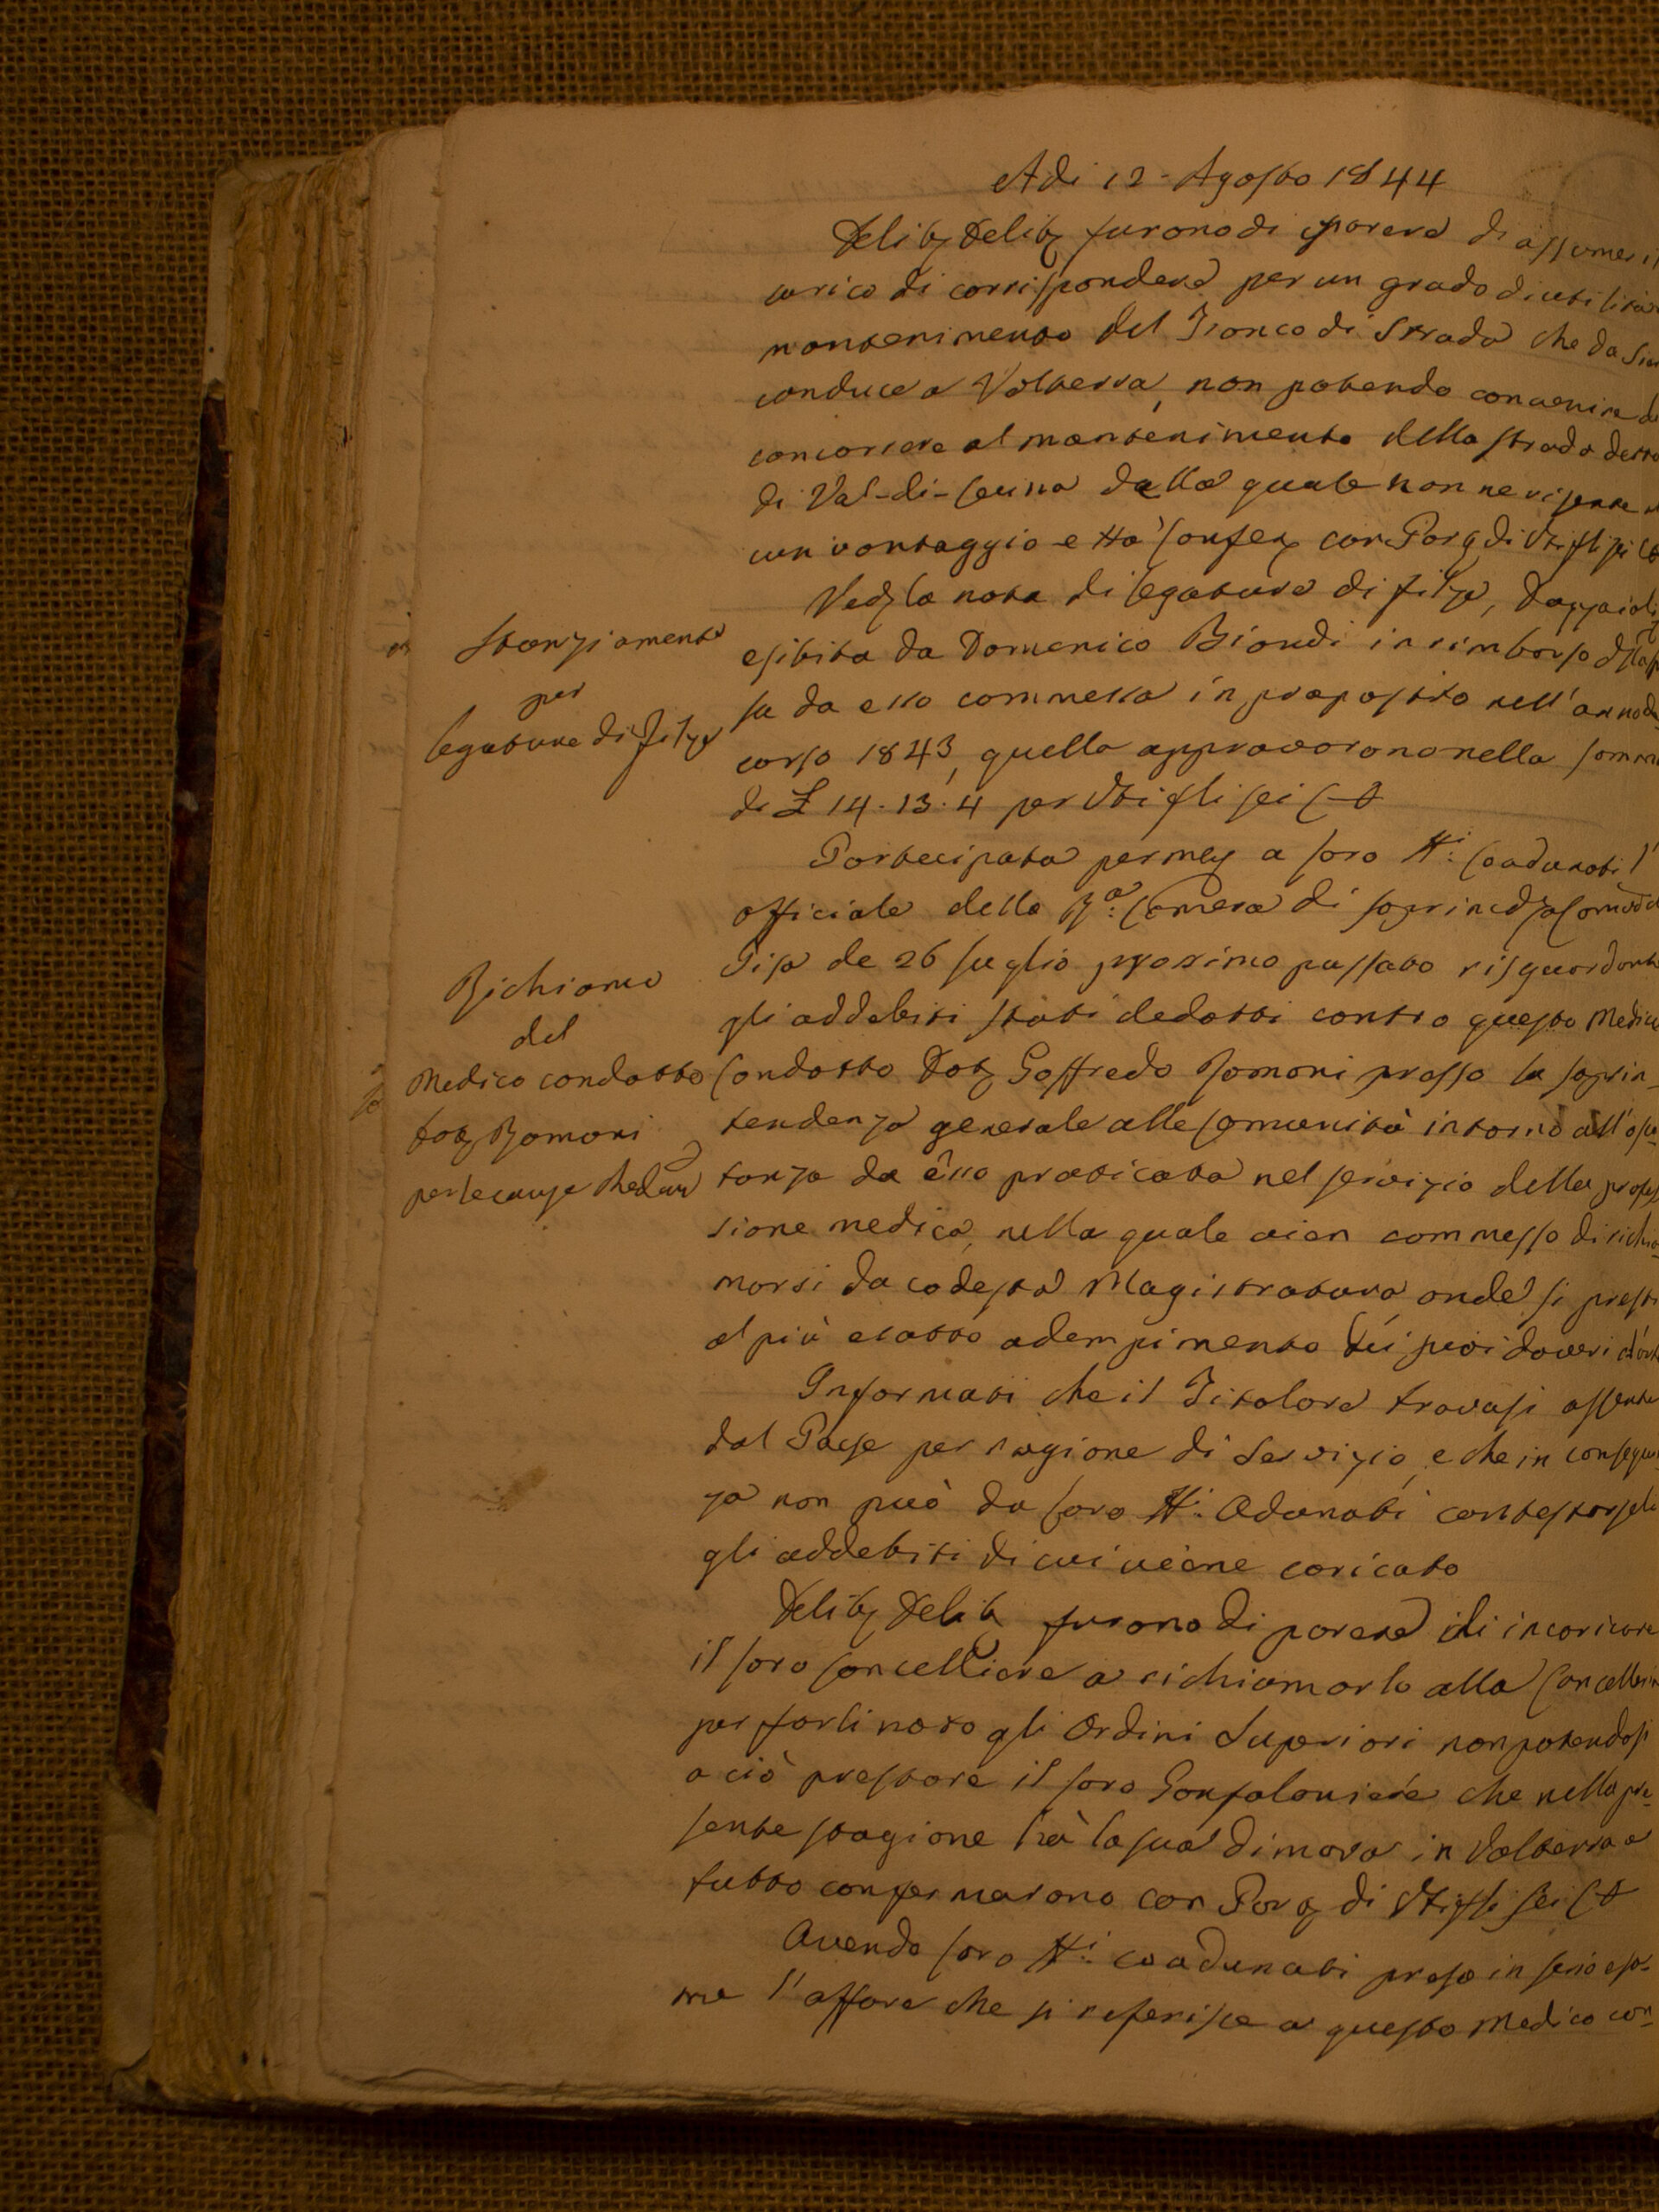 Adi 12 - Agosto 1844
Delib Delib furono di parere di assumer il
carico di corrispondere per un grado di utilità
mantenimento del Tronco di Strada che da
conduce a Volterra, non potendo convenire di
concorrere al mantenimento della strada detta
di Val-di-Cecina dalla quale non ne risente
cun vantaggio e tto Confer con Par di Vti fli sei Ct
Ved la nota di legature di filze, dazzaioli
esibita da Domenico Biondi in rimborso
sa da esso commessa in proposito nell'anno de
corso 1843, quella approvarono nella somma
di £ 14.13.4 per Vti fli sei Ct
Stanziamento
per
legature di filze
Partecipata per me a loro SSi: Coadunati l'
officiale della Ra: Camera di
Pisa de 26 Luglio prossimo passato risguardante
gli addebiti stati dedotti contro questo Medico
Condotto Dot Goffredo Romani presso la soprin-
tendenza generale alle Comunità intorno all'
tanza da esso praticata nel servizio della profes
sione medica, nella quale vien commesso di richia-
marsi da codesta Magistratura onde si presti
al più esatto adempimento dei suoi doveri
Richiamo
del
Medico condotto
Dot Romani
per le cause
Informati che il Titolare trovasi assente
dal Paese per ragione di Servizio, e che in conseguen
za non può da loro SSi: Adunati contestarseli
gli addebiti di cui viene caricato
Delib Delib furono di parere di incaricare
il loro Cancelliere a richiamarlo alla Cancelleria
per farli noto gli Ordini Superiori non potendosi
a ciò prestare il loro Gonfaloniere che nella pre-
sente stagione hà la sua dimora in Volterra e
tutto confermarono con Par di Vti fli sei Ct
Avendo loro SSi: coadunati preso in serio esa-
me l'affare che si referisce a questo Medico con-